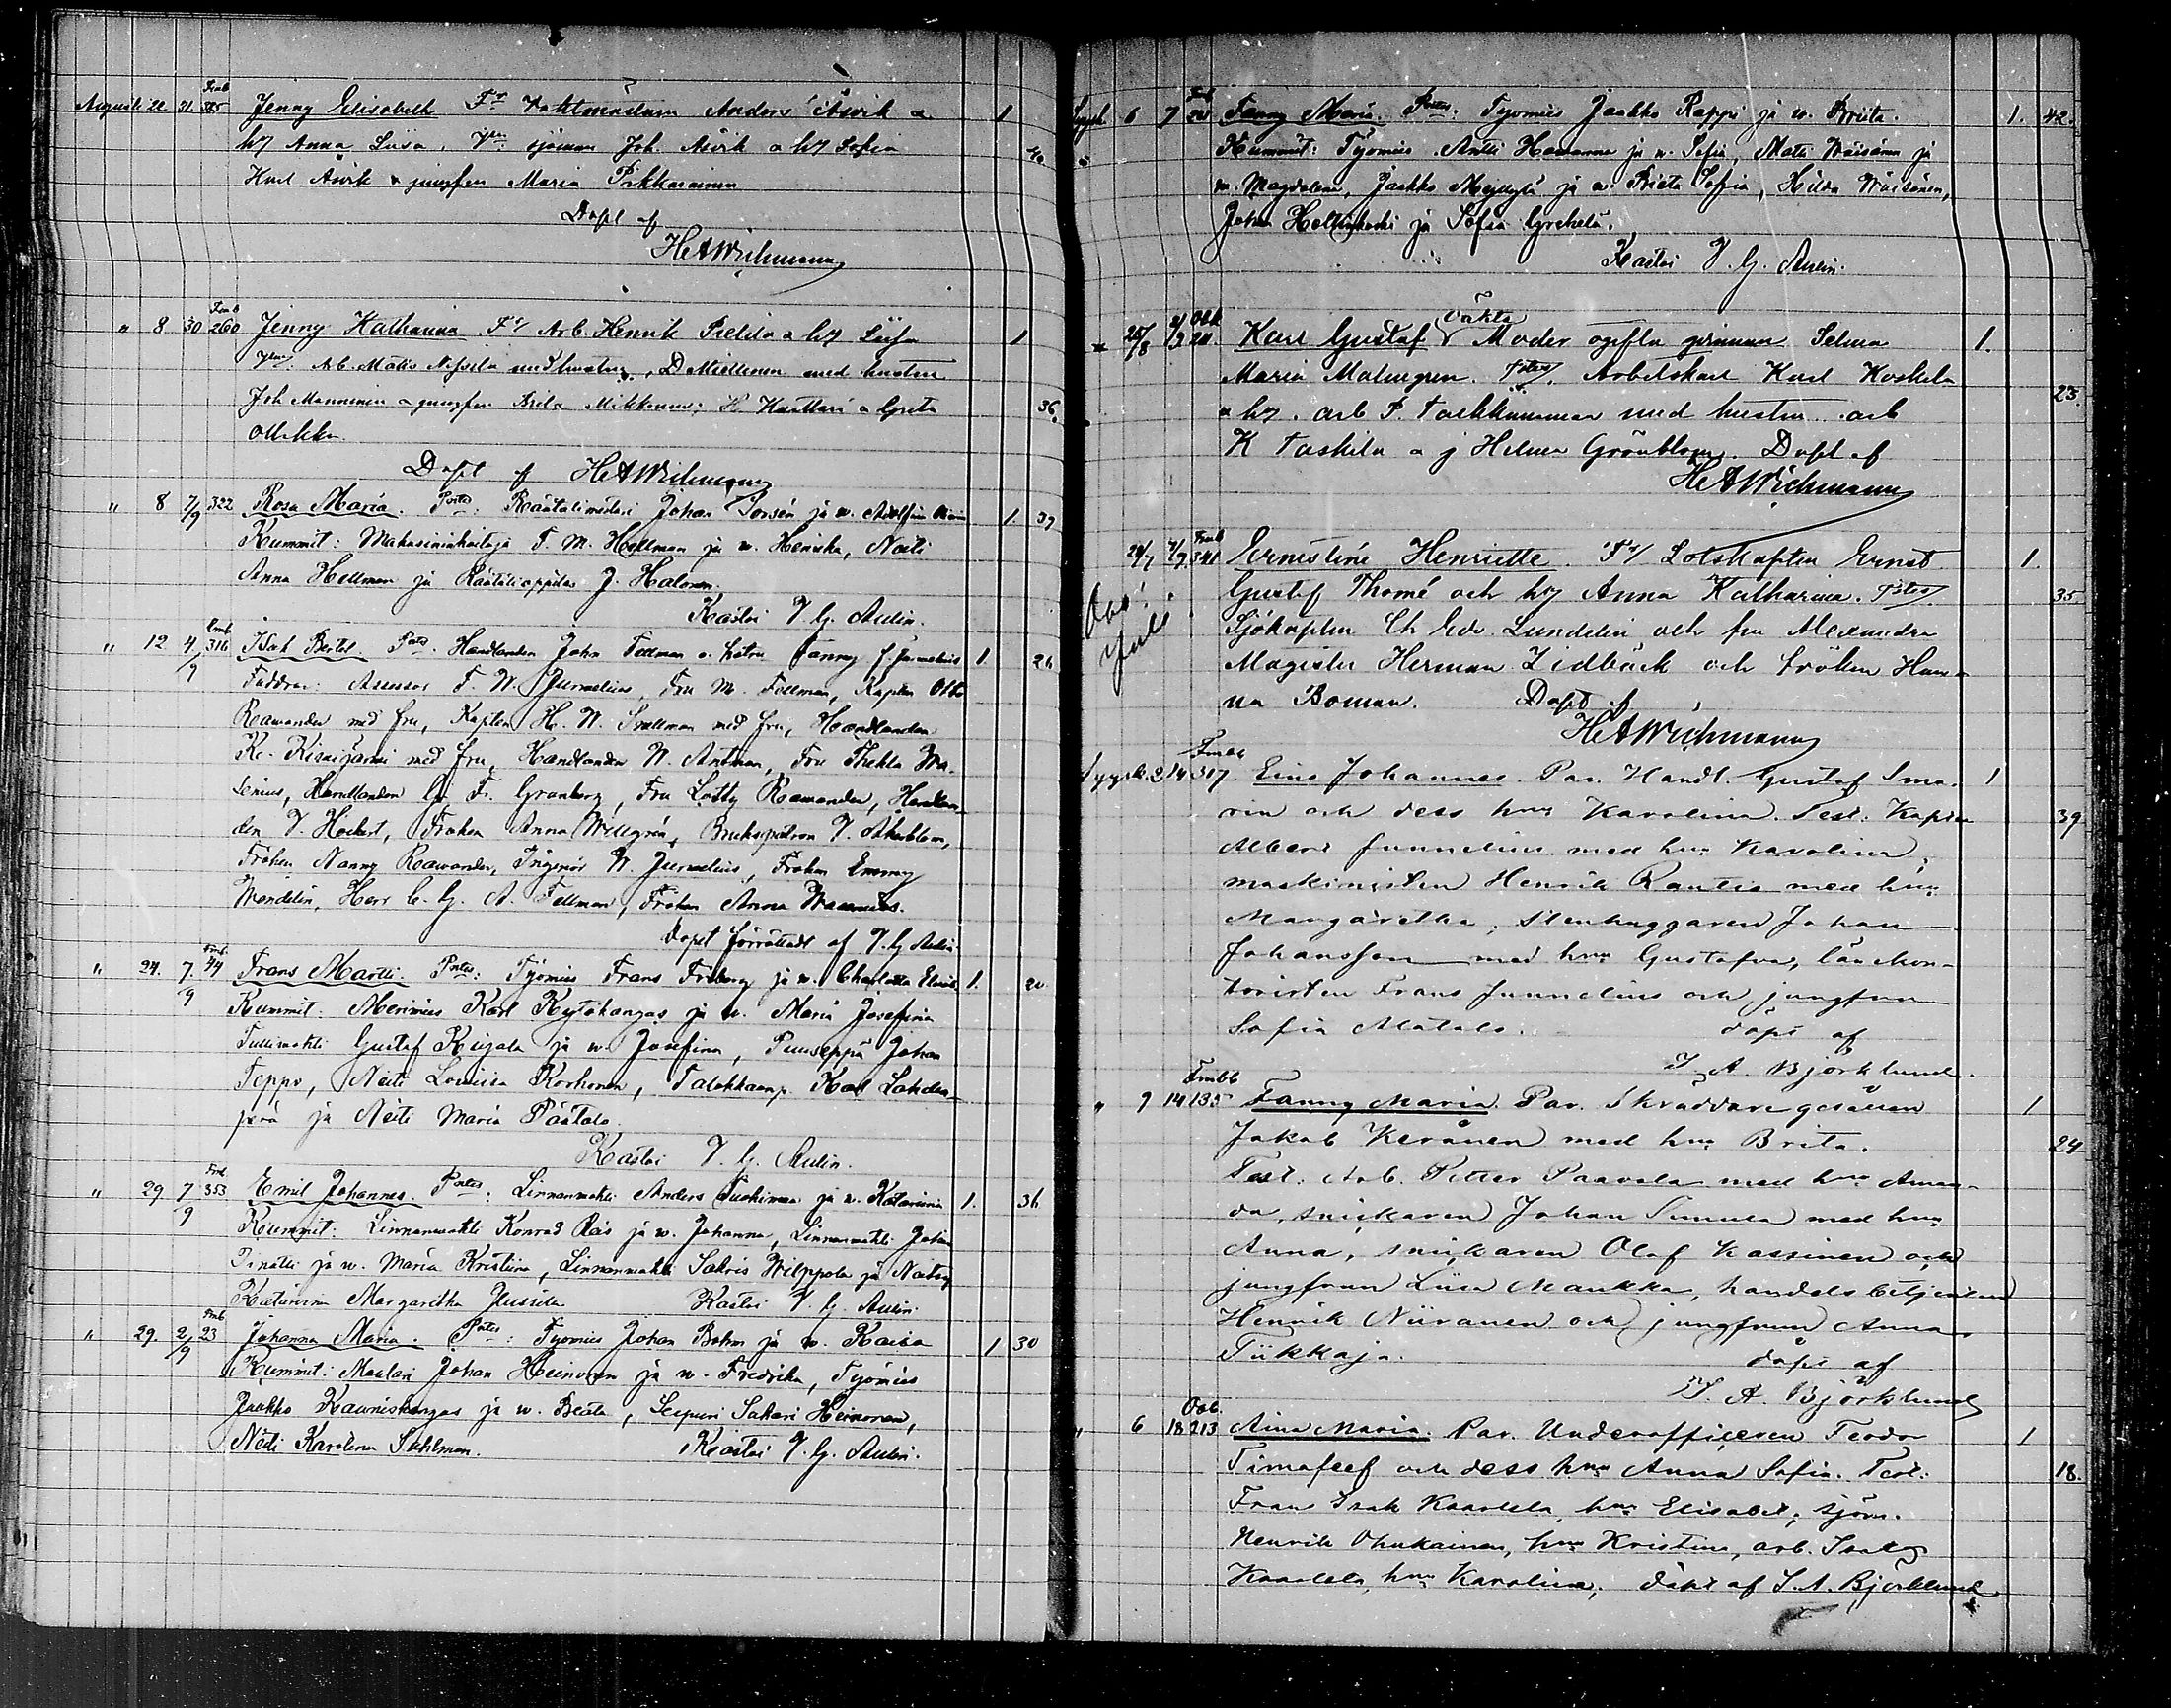 Augusti 22 31 Fmb 385 Jenny Elisabeth Fr Vaktmästaren Anders Åsvik o 1
h/ Anna Liisa. sjöman Joh. Åsvik o h/ Sofia 40
Karl Åsvik o jungfru Maria Pikkarainen
Döpt af
HAWichmann
" 8 30 Fmb 260 Jenny Katharina Fr/ Arb. Henrik Pielda o h/ Liisa 1
Arb. Matts med hustru, D Miettinen med hustru
Joh Manninen o jungfru Brita Mikkonen; H. Kvattari o Greta 36.
Ollikka
Döpt af HAWichmann
" 8 7/9 322 Rosa Maria. Räätälimestari Johan Torsén ja w. Adolfina Maria 1. 39
Kummit: Makasiininhoitaja F. M. Hellman ja w. Henrika, Neiti
Anna Hellman ja Räätälioppilas J. Halonen.
Kastoi V. G. Aulin.
" 12 4/9 Fmb 316 Isak Bertel. Handlanden John Fellman o. hstru Fanny f. Jurvelius 1. 26
Faddrar: Assessor F. W. Jurvelius, Fru M. Fellman, Kapten Otto
Rawander med fru, Kapten H. W. Snellman med fru, Handlanden
K. Kisnigarni med fru, Handlanden W. Antman, Fru Thekla Wa-
senius, Handlanden G. Fr. Granberg, Fru Lotty Rawander, Handlan-
den V. Höckert, Fröken Anna Willgrén, Brukspatron V. Åkerblom,
Fröken Nanny Rawander, Ingeniör W. Jurvelius, Fröken Emmy
Wendelin, Herr C. G. A. Fellman, Fröken Anna
Dopet förrättadt af V. G. Aulin
" 24. 7/9 Fmb. 44 Frans Martti. Työmies Frans Friberg ja w. Charlotta 1. 20.
Kummit. Merimies Karl Kytökangas ja w. Maria Josefina
Tullivahti Gustaf Keijala ja w. Josefina, Puuseppä Johan
Teppo, Neiti Lovisa Korhonen, Karl Lahden-
perä ja Neiti Maria Päätalo.
Kastoi V. G. Aulin.
" 29 7/9 Fmb. 353 Emil Johannes. Linnanvahti Anders Tuohimaa ja w. Katariina 1. 36
Kummit: Linnanvahti Konrad Räis ja w. Johanna, Linnanvahti Johan
ja w. Maria Kristiina, Linnanvahti Sakris Wilppola ja Neitsy
Katariina Margaretha Jussila Kastoi V. G. Aulin.
" 29. 2/9 Fmb 23 Johanna Maria. Työmies Johan Bohm ja w. Kaisa 1 30
Kummit: Maalari Johan Heinonen ja w. Fredrika, Työmies
Jaakko Kauniskangas ja w. Beata, Seppuri Sakari Heinonen,
Neiti Karolina Stahlman. Kastoi V. G. Aulin.
Syysk 6 7 Fanny Maria. Työmies Jaakko Rappi ja w. Briita. 1. 42.
Kummit: Työmies Antti ja w. Sofia, Matti Wäisänen ja
w. Magdalena, Jaakko ja w. Briita Sofia, Hilda Wäisänen,
Johan ja Sofia
Kastoi V. G. Aulin.
" 26/8 2/9 Obb 211 Karl Gustaf oäkta Moder ogifta qvinnan Selma 1.
Maria Malmgren. Arbetskarl Karl Koskela 23.
o h/. arb P. med hustru arb
K Taskila o j Helena Grönblom. Döpt af
HAWichmann
24/7 7/9 Fmb 341 Ernestine Henriette. Fr/ Lotskapten Ernst 1.
Obs! Juli Gustaf Thomé och h/ Anna Katharina. 35
Sjökapten Ch Edv. Lundelin och fru Alexandra
Magister Herman Lidbäck och fröken Han-
na Boman. Döpt af
HAWichmann
Syysk. 2 14 Fmbb 317 Eino Johannes. Par. Handl. Gustaf Sma- 1
rin och dess hru Karolina. Test: Kapten 39
Albert Junnelius med hru Karolina,
maskinisten Henrik Rautio med hru
Margaretha, stenhuggaren Johan
Johansson med hru Gustafva, länekon-
toristen Frans Junnelius och jungfrun
Sofia Matala. döpt af
I. A. Björklund.
" 9 14 Fmbb 135 Fanny Maria. Par. Skräddaregesällen 1
Jakob Keränen med hru Brita. 24
Test: Arb. Petter Paavola med hru Aman-
da, snickaren Johan Simula med hru
Anna, snickaren Olof Kassinen och
jungfrun Liisa Maukka, handelsbetjenten
Henrik Niiranen och jungfrun Anna
Tiikkaja. döpt af
I. A. Björklund
" 6 18 Oob. 213 Aina Maria. Par. Underofficeren Teodor 1
Timofeef och dess hru Anna Sofia. Test: 18.
Frans Isak Kaarlela, hru Elisabet, sjöm.
Henrik Ohukainen, hru Kristina, arb. Isak
Kaarlela, hru Karolina, döpt af I. A. Björklund